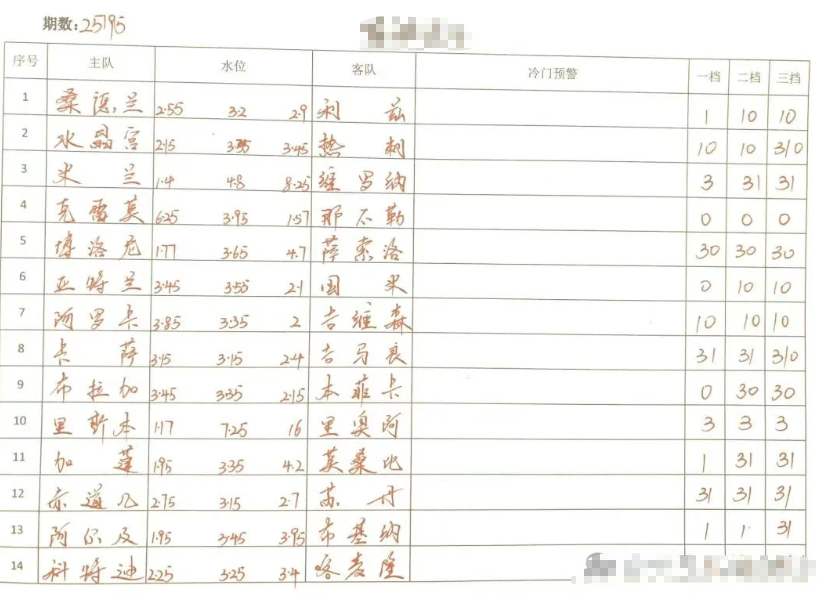 期数: 25195
序号 主队 水位 客队 冷门预警 一档 二档 三档
1 桑德兰 2.55 3.2 2.9 利兹 1 10 10
2 水晶宫 2.15 3.35 3.45 热刺 10 10 310
3 米兰 1.4 4.8 8.25 维罗纳 3 31 31
4 克雷莫 6.25 3.95 1.57 那不勒 0 0 0
5 博洛尼 1.77 3.65 4.7 萨索洛 30 30 30
6 亚特兰 3.45 3.55 2.1 国米 0 10 10
7 阿罗卡 3.85 3.35 2 吉维森 10 10 10
8 卡萨 3.15 3.15 2.4 吉马良 31 31 310
9 布拉加 3.45 3.35 2.15 本菲卡 0 30 30
10 里斯本 1.17 7.25 16 里奥阿 3 3 3
11 加蓬 1.95 3.35 4.2 莫桑比 1 31 31
12 赤道几 2.75 3.15 2.7 苏丹 31 31 31
13 阿尔及 1.95 3.45 3.95 布基纳 1 1 31
14 科特迪 2.25 3.25 3.4 喀麦隆